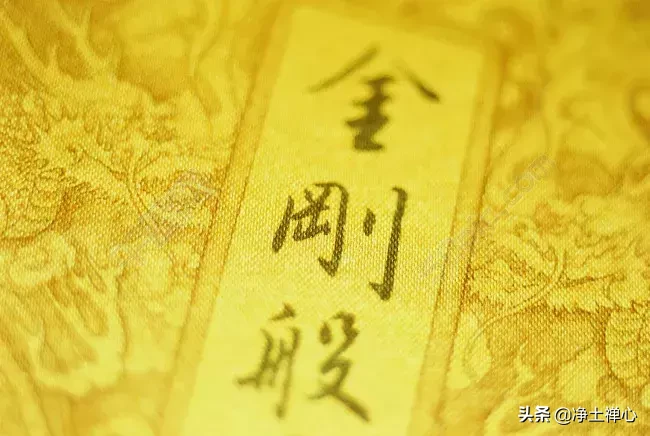 金剛般
头条 @净土禅心